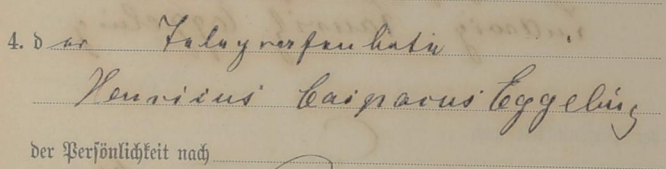 4. der Telegrafenbote
Henricus Casparus Eggeling
der Persönlichkeit nach